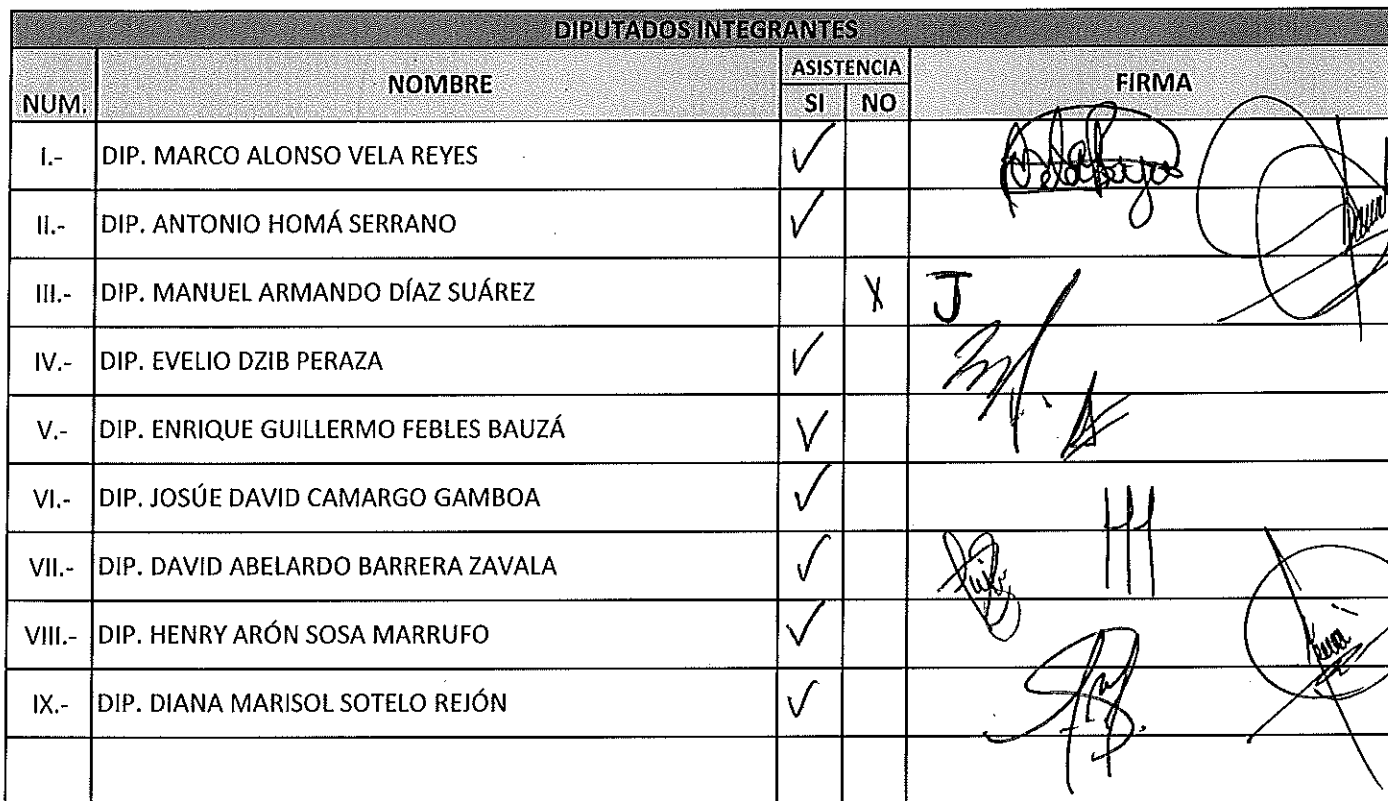 DIPUTADOS INTEGRANTES
NUM. NOMBRE ASISTENCIA FIRMA
SI NO
I.- DIP. MARCO ALONSO VELA REYES ✓
II.- DIP. ANTONIO HOMÁ SERRANO ✓
III.- DIP. MANUEL ARMANDO DÍAZ SUÁREZ X J
IV.- DIP. EVELIO DZIB PERAZA ✓
V.- DIP. ENRIQUE GUILLERMO FEBLES BAUZÁ ✓
VI.- DIP. JOSÚE DAVID CAMARGO GAMBOA ✓
VII.- DIP. DAVID ABELARDO BARRERA ZAVALA ✓
VIII.- DIP. HENRY ARÓN SOSA MARRUFO ✓
IX.- DIP. DIANA MARISOL SOTELO REJÓN ✓